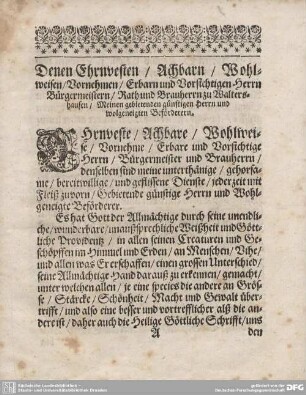 Denen Ehrnvesten / Achbarn / Wohl-
weisen / Vornehmen / Erbarn und Vorsichtigen Herrn
Bürgermeistern / Rath und Brauherrn zu Walters-
hausen / Meinen gebietenden günstigen Herrn und
wolgeneigten Beförderern.
Ehrnveste / Achbare / Wohlwei-
se / Vornehme / Erbare und Vorsichtige
Herrn / Bürgermeister und Brauherrn /
denselben sind meine unterthänige / gehorsa-
me / bereitwillige / und geflissene Dienste / jederzeit mit
Fleiß zuvorn / Gebietende günstige Herrn und Wohl-
geneigte Beförderer.
Es hat Gott der Allmächtige durch seine unendli-
che / wunderbare / unaussprechliche Weißheit und Gött-
liche Providentz / in allen seinen Creaturen und Ge-
schöpffen im Himmel und Erden / an Menschen / Vihe /
und allen was Er erschaffen / einen grossen Unterschied /
seine Allmächtige Hand darauß zu erkennen / gemacht /
unter welchen allen / je eine species die andere an Grös-
se / Stärcke / Schönheit / Macht und Gewalt über-
trifft / und also eine besser und vortrefflicher alß die an-
dere ist / daher auch die Heilige Göttliche Schrifft / uns
A den